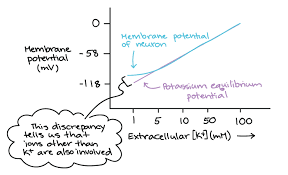 0
Membrane potential
of neuron
Membrane
potential
(mV)
-58
-118
Potassium equilibrium
potential
1 5 10 50 100
Extracellular [K+] (mM) →
This discrepancy
tells us that
ions other than
K+ are also involved